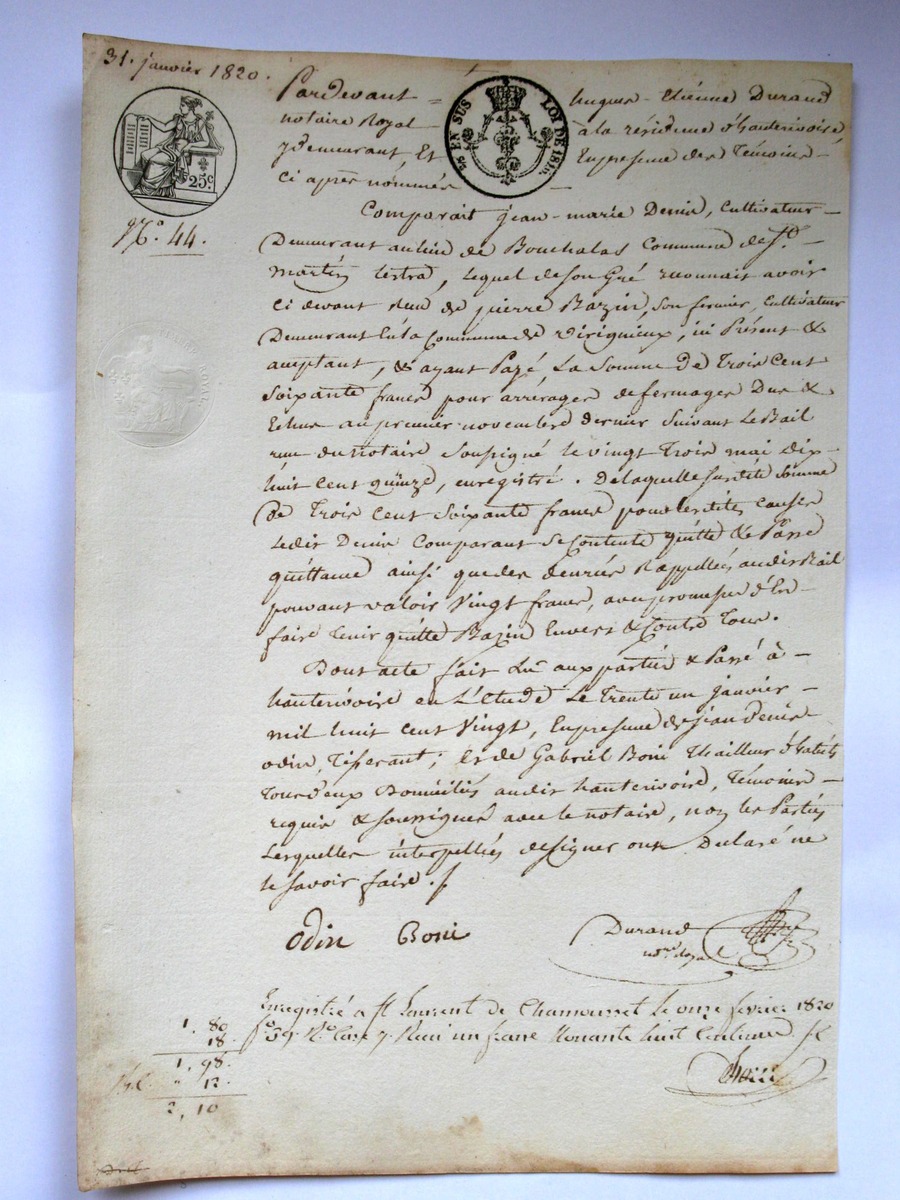 31. janvier 1820.
Pardevant = hugues - Etienne Durand
notaire Royal à la résidence d'hauterivoire,
y demeurant, Et En presence des Témoins -
ci après nommés -
EN SUS LOI DE 1816.
25c
N.o 44.
ROYAL
Comparait jean-marie Denis, Cultivateur -
Demeurant au lieu de Bouchalas Commune de St. -
martin lestra, lequel de son Gré reconnait avoir
Ci devant reçu de pierre Bazin, son fermier, Cultivateur
Demeurant En la Commune de Virignieux, ici Présent &
acceptant, & ayant Payé, La Somme De Trois Cent
Soixante francs pour arrérages de fermages Dus &
Echus au premier novembre dernier Suivant le Bail
reçu du Notaire Soussigné le vingt Trois mai dix-
huit cent quinze, enregistré. De laquelle susdite Somme
De Trois Cent Soixante francs pour les dites causes
Ledit Denis Comparant se Contente quitte & Passe
quittance ainsi que des denrées Rappellées audit Bail
pouvant valoir Vingt francs, avec promesse d'En
faire Tenir quitte Bazin Envers & Contre Tous.
Dont acte fait Lu aux parties & Passé à -
hauterivoire en L'étude Le Trente un janvier -
mil huit cent Vingt, En presence de jean Denis
odin, Tisserant; Et de Gabriel Boni Thailleur d'habits
Tous deux Domiciliés audit hauterivoire, Témoins -
requis & soussignés avec le notaire, non les Parties
Lesquelles interpellées de signer ont Déclaré ne
le savoir faire.
Odin Boni Durand
n.re royal
Enregistré a St. Laurent de Chamousset le onze fevrier 1820
f.o 59. R.o Case 7. Reçu un franc Nonante huit Centimes
1. 80
18.
1, 98.
" 12.
2, 10